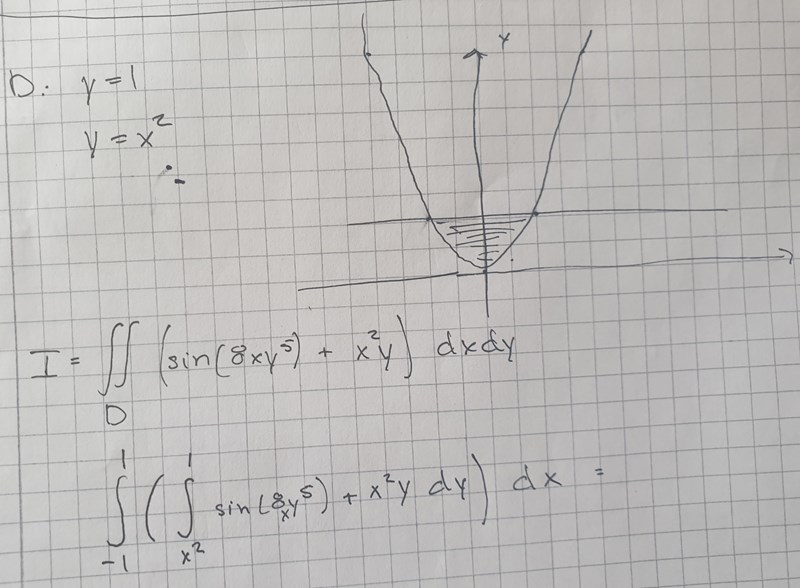 D: y=1
y = x²
Y
I = ∬_D (sin(8xy⁵) + x²y) dxdy
∫_{-1}^{1} (∫_{x²}^{1} sin(8xy⁵) + x²y dy) dx =